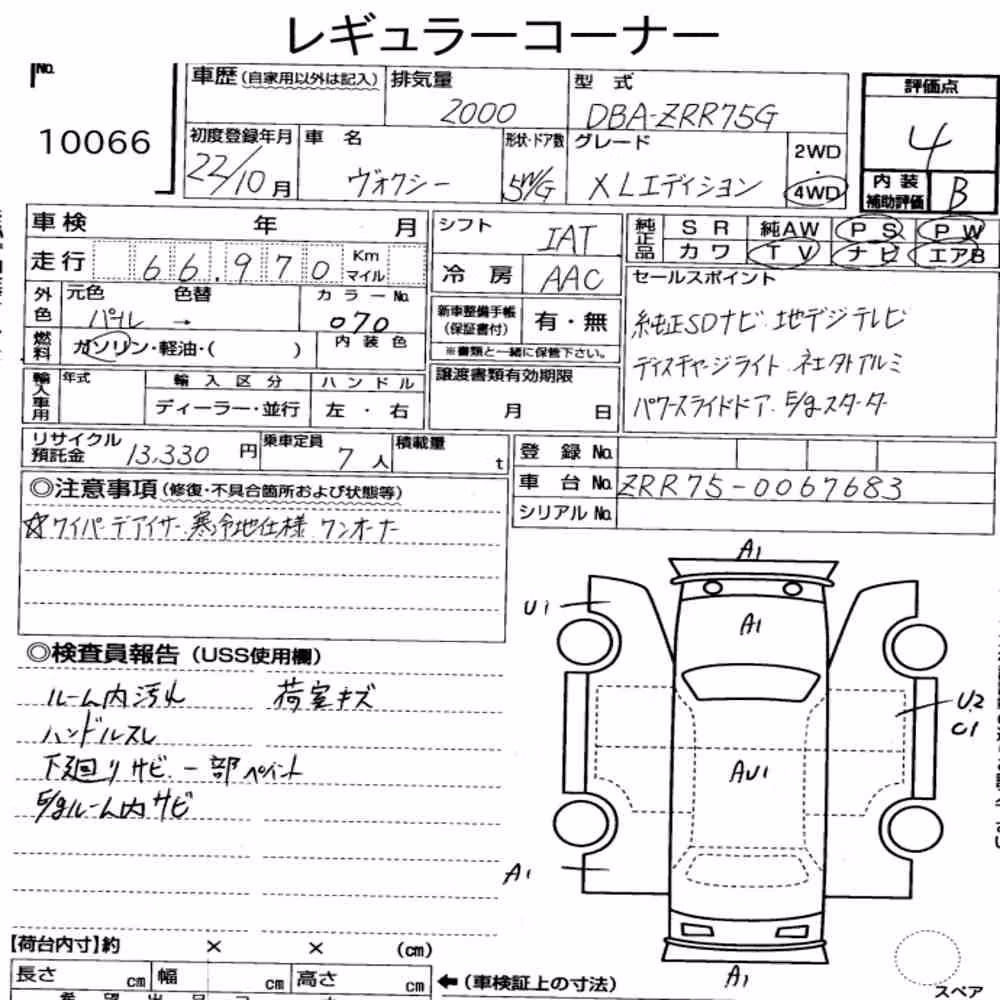 レギュラーコーナー
No. 10066
車歴(自家用以外は記入)
排気量 2000
型式 DBA-ZRR75G
評価点 4
初度登録年月 22/10月
車名 ヴォクシー
形状・ドア数 5W/G
グレード XLエディション
2WD・4WD
内装補助評価 B
車検 年 月
シフト IAT
純正品 SR 純AW PS PW
カワ TV ナビ エアB
走行 66,970 Km マイル
冷房 AAC
セールスポイント
純正SDナビ 地デジテレビ
ディスチャージライト 社外アルミ
パワースライドドア E/gスターター
外色 元色 パール 色替 → カラーNo. 070
新車整備手帳(保証書付) 有・無
※書類と一緒に保管下さい。
燃料 ガソリン・軽油・( ) 内装色
譲渡書類有効期限 月 日
輸入車用 年式 輸入区分 ハンドル
ディーラー・並行 左・右
リサイクル預託金 13,330円
乗車定員 7人
積載量 t
登録No.
車台No. ZRR75-0067683
シリアルNo.
◎注意事項(修復・不具合箇所および状態等)
☆ワイパーデアイサー 寒冷地仕様 ワンオーナー
◎検査員報告(USS使用欄)
ルーム内汚れ 荷室キズ
ハンドルスレ
下廻りサビ 一部ペイント
E/gルーム内サビ
A1
U1
A1
U2
C1
AU1
A1
A1
【荷台内寸】約 × × (cm)
長さ cm 幅 cm 高さ cm
←(車検証上の寸法)
スペア